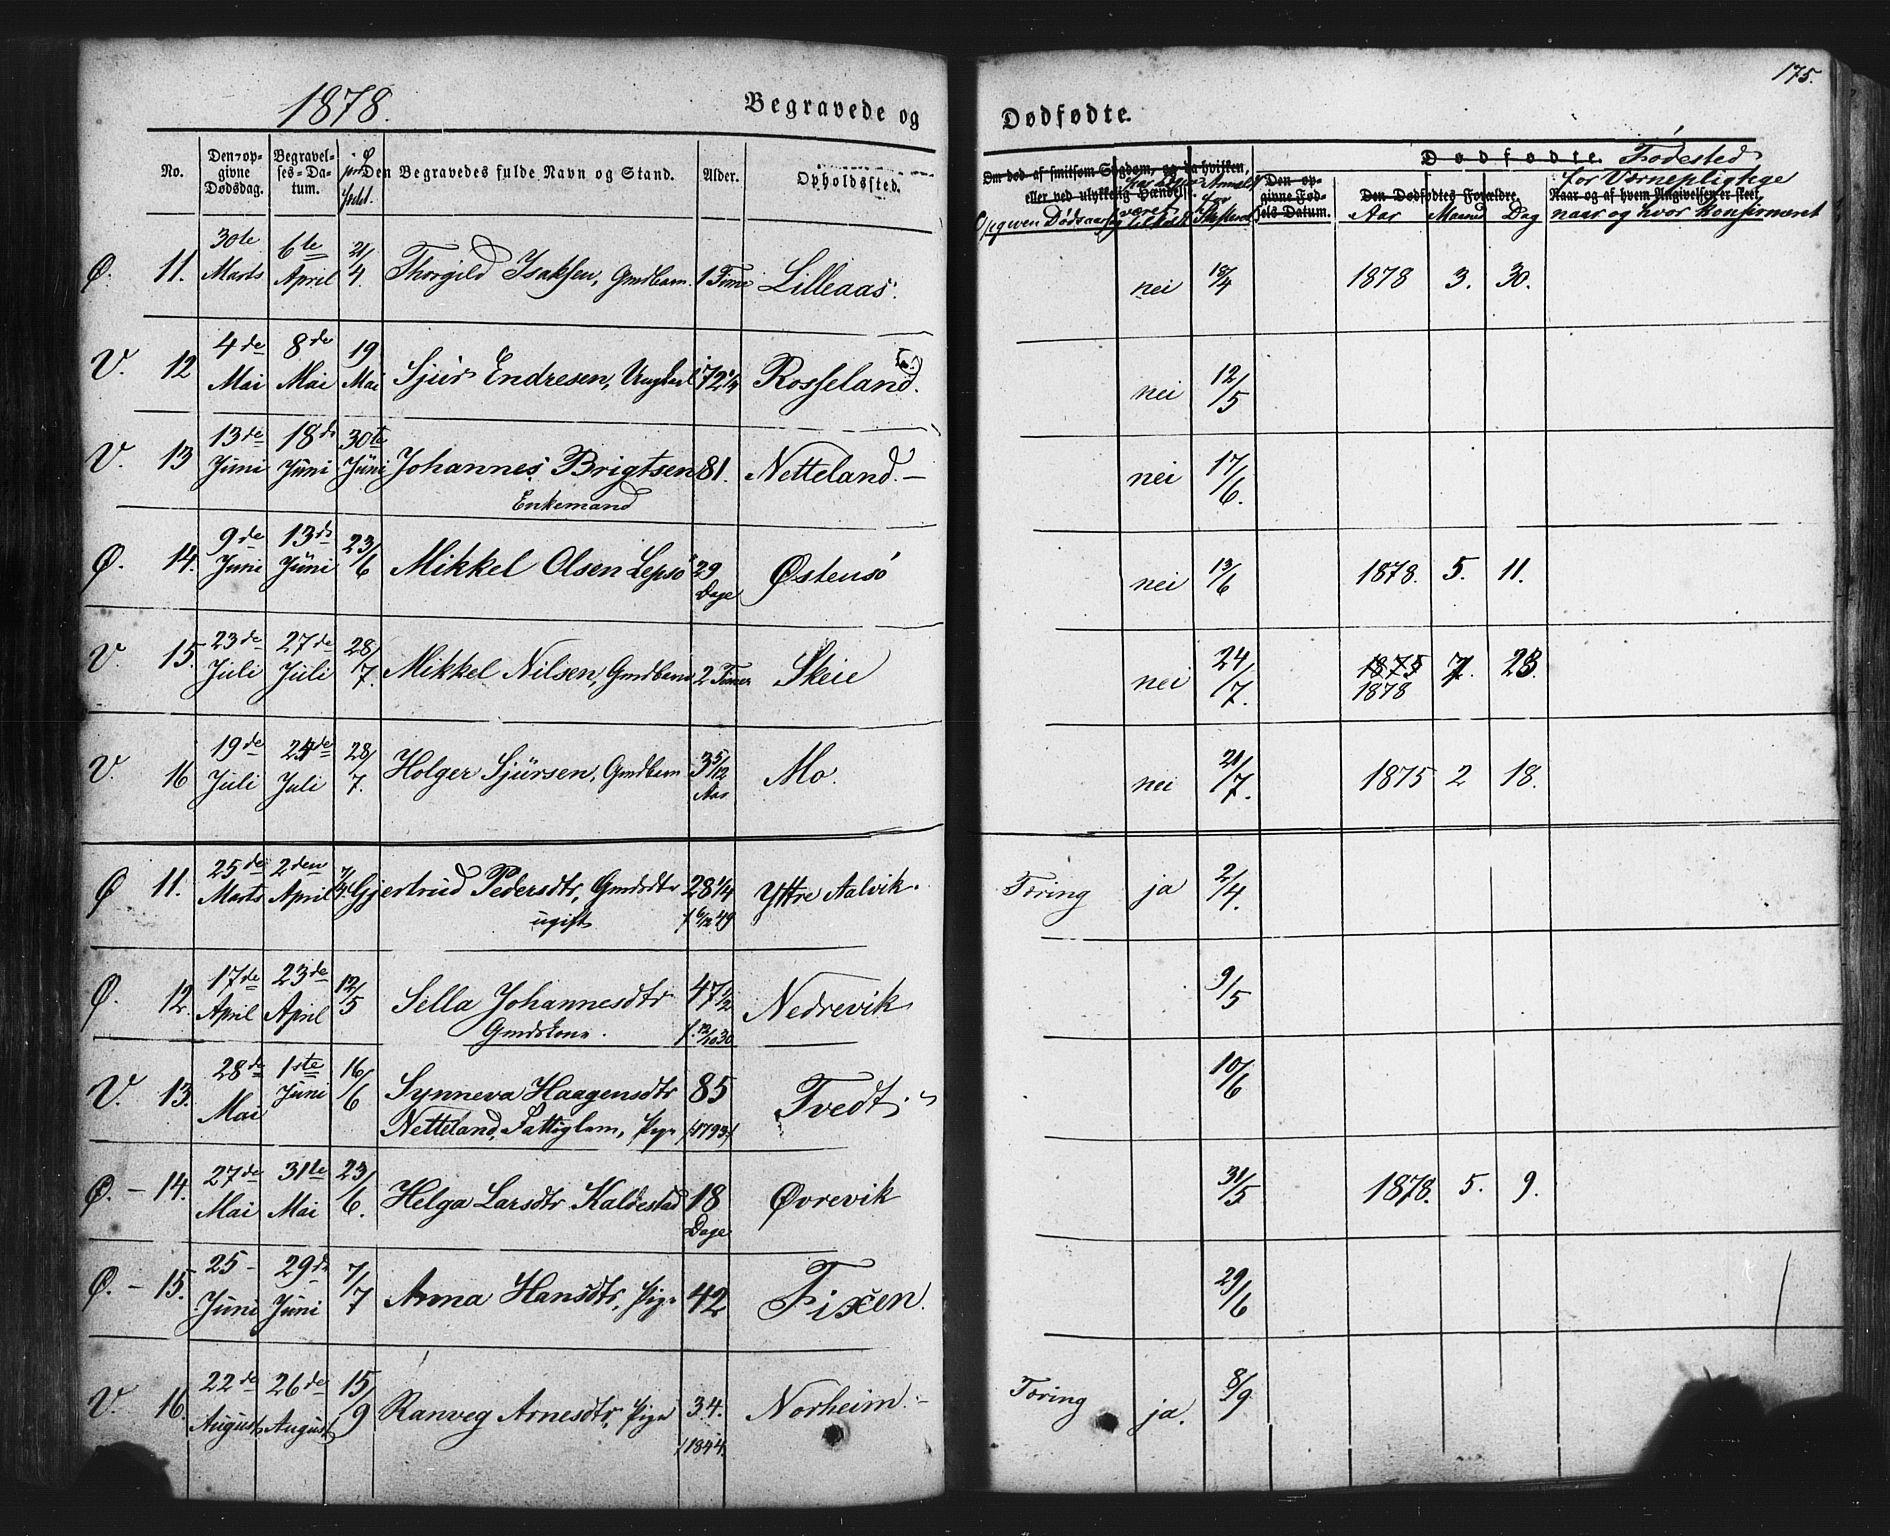 1878.
Begravede og
Dødfødte.
175.
No.
Den op-
givne
Dødsdag.
Begravel-
ses-Da-
tum.
Den Begravedes fulde Navn og Stand.
Alder.
Opholdssted.
Om død af smitsom Sygdom, og da hvilken,
eller ved ulykkelig Hændelse.
Opgiven Dødsaarsag
Den op-
givne Fød-
sels Datum.
Dødfødte. Fødested
Den Dødfødtes Forældre.
Aar Maaned Dag
for Værnepligtige
Naar og af hvem Angivelsen er skeet.
naar og hvor Konfirmeret
Ø. 11. 30te Marts 6te April 21/4. Thorgild Isaksen, Gmdbarn. 1 Time Lilleaas. nei 18/4 1878 3. 30.
V. 12 4de Mai 8de Mai 19 Mai Sjur Endresen, Ungkarl 72 1/4 Rosseland. nei 12/5
V. 13 13de Juni 18de Juni 30te Juni Johannes Brigtsen 81. Netteland.- nei 17/6.
Enkemand
Ø. 14. 9de Juni 13de Juni 23/6 Mikkel Olsen Lepsö 29 Dage Østensö nei 13/6 1878. 5. 11.
V. 15. 23de Juli 27de Juli 28/7. Mikkel Nilsen, Gmdbarn 2 Timer Skeie nei 24/7. 1875 7. 23.
1878
V. 16 19de Juli 24de Juli 28/7. Holger Sjursen, Gmdbarn 3 5/12 Aar Mo. nei 21/7. 1875 2 18.
Ø 11. 25de Marts 2den April 7/4. Gjertrud Pedersdtr, Gmdsdtr 28 1/4 Yttre Aalvik. Tæring ja 2/4.
ugift f. 6/12 49
Ø. 12. 17de April 23de April 12/5 Sella Johannesdtr 47 1/2 Nedrevik 9/5
Gmdskone. f. 12/10 30
V. 13. 28de Mai 1ste Juni 16/6 Synneva Haagensdtr 85 Tvedt. 10/6
Netteland, Fattiglem, Pige f. 1793
Ø. - 14. 27de Mai 31te Mai 23/6. Helga Larsdtr Kaldestad 18 Dage Øvrevik 31/5 1878. 5. 9.
Ø. - 15. 25 - Juni 29de Juni 7/7 Anna Hansdtr, Pige 42 Fixen. 29/6
V. 16. 22de August 26de August 15/9 Ranveg Arnesdtr, Pige 34. Norheim.- Tæring ja. 8/9
f 1844.